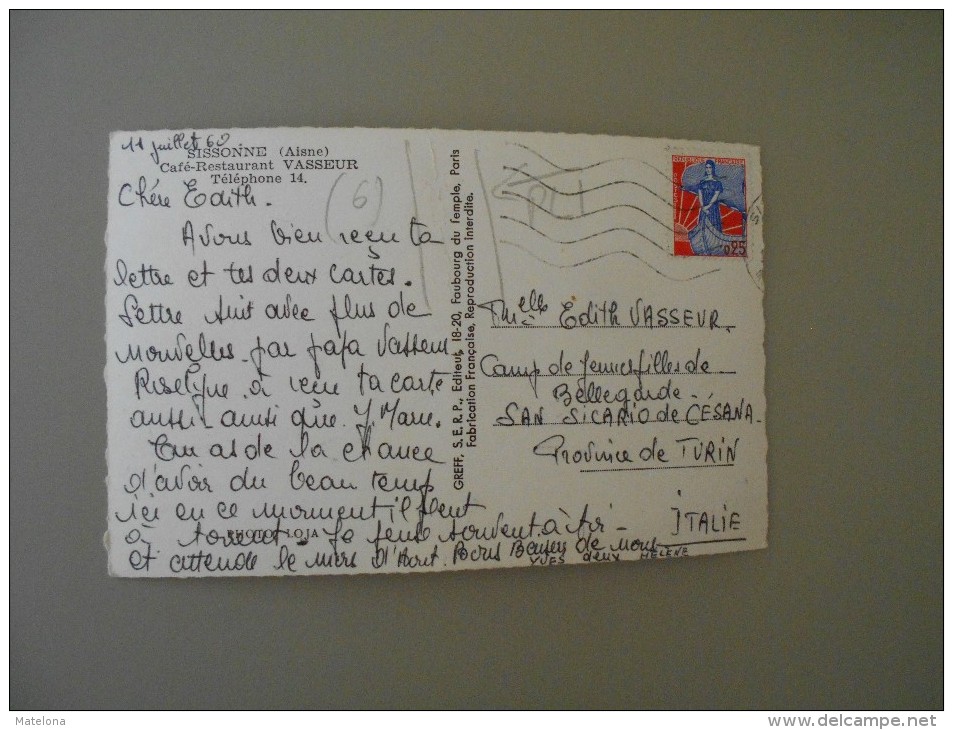 11 juillet 60.
SISSONNE (Aisne)
Café-Restaurant VASSEUR
Téléphone 14.
Chère Edith.
Avons bien reçu ta
lettre et tes deux cartes.
Lettre suit avec plus de
nouvelles par papa Vasseur
a reçu ta carte
aussi ainsi que J. Marc.
Tu as de la chance
d'avoir du beau temps
ici en ce moment il pleut
à torrent. Je pense souvent à toi
PHOTO LOJA
et attends le mois d'Août. Bons Baisers de nous
deux
YVES HELENE
GREFF, S.E.R.P., Editeur, 18-20, Faubourg du Temple, Paris
Fabrication Française, Reproduction interdite.
(6)
PLI
REPUBLIQUE FRANÇAISE
POSTES
0,25
Melle Edith VASSEUR.
Camp de Jeunes filles de
Bellegarde.
SAN SICARIO de CÉSANA.
Province de TURIN
ITALIE
Matelona
www.delcampe.net